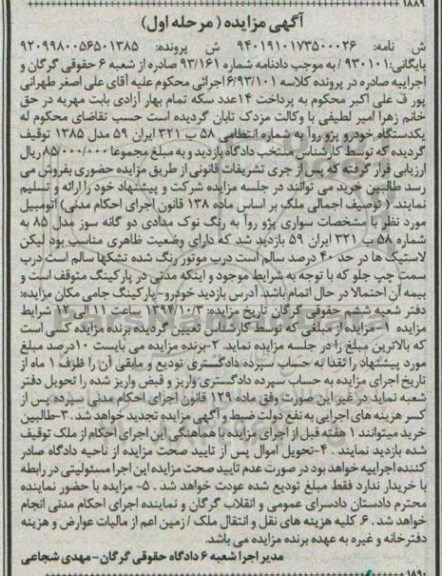 ۱۸۸۹
آگهی مزایده ( مرحله اول)
ش نامه: ۹۴۰۱۹۱۰۱۷۳۵۰۰۰۲۶ ش پرونده: ۹۲۰۹۹۸۰۰۵۶۵۰۱۳۸۵
بایگانی:۹۳۰۱۰۱ / به موجب دادنامه شماره ۹۳/۱۶۱ صادره از شعبه ۶ حقوقی گرگان و
اجراییه صادره در پرونده کلاسه ۶/۹۳/۱۰۱اجرائی محکوم علیه آقای علی اصغر طهرانی
پور ف علی اکبر محکوم به پرداخت ۱۴عدد سکه تمام بهار آزادی بابت مهریه در حق
خانم زهرا امیر لطیفی با وکالت مزدک تابان گردیده است حسب تقاضای محکوم له
یکدستگاه خودرو پژو روآ به شماره انتظامی ۵۸ ب ۳۲۱ ایران ۵۹ مدل ۱۳۸۵ توقیف
گردیده که توسط کارشناس منتخب دادگاه بازدید و به مبلغ مجموعا ۸۵/۰۰۰/۰۰۰ ریال
ارزیابی قرار گرفته که پس از جری تشریفات قانونی از طریق مزایده حضوری بفروش می
رسد طالبین خرید می توانند در جلسه مزایده شرکت و پیشنهاد خود را ارائه و تسلیم
نمایند. ( توصیف اجمالی ملک بر اساس ماده ۱۳۸ قانون اجرای احکام مدنی) اتومبیل
مورد نظر با مشخصات سواری پژو روآ به رنگ نوک مدادی دو گانه سوز مدل ۸۵ به
شماره ۵۸ ب ۳۲۱ ایران ۵۹ بازدید شد که دارای وضعیت ظاهری مناسب بود لیکن
لاستیک ها در حد ۴۰ درصد سالم است درب موتور رنگ شده تشکها سالم است درب
سمت چپ جلو که با توجه به شرایط موجود و اینکه مدتی در پارکینگ متوقف است و
بیمه آن احتمالا در حال اتمام باشد. آدرس بازدید خودرو- پارکینگ جامی مکان مزایده:
دفتر شعبه ششم حقوقی گرگان تاریخ مزایده: ۱۳۹۴/۱۰/۲ ساعت ۱۱ الی ۱۲ شرایط
مزایده ۱-مزایده از مبلغی که توسط کارشناس تعیین گردیده برنده مزایده کسی است
که بالاترین مبلغ را در جلسه مزایده نماید. ۲-برنده مزایده می بایست ۱۰درصد مبلغ
مورد پیشنهاد را نقدا به حساب سپرده دادگستری تودیع و مابقی آن را ظرف ۱ ماه از
تاریخ اجرای مزایده به حساب سپرده دادگستری واریز و قبض واریز شده را تحویل دفتر
شعبه نماید در غیر این صورت وفق ماده ۱۲۹ قانون اجرای احکام مدنی سپرده پس از
کسر هزینه های اجرایی به نفع دولت ضبط و آگهی مزایده تجدید خواهد شد. ۳-طالبین
خرید میتوانند ۱ هفته قبل از اجرای مزایده با هماهنگی این اجرای احکام از ملک توقیف
شده بازدید نمایند . ۴-تحویل اموال پس از تایید صحت مزایده از ناحیه دادگاه صادر
کننده اجراییه خواهد بود در صورت عدم تایید صحت مزایده این اجرا مسئولیتی در رابطه
با خریدار ندارد فقط مبلغ تودیع شده عودت خواهد شد . ۵- مزایده با حضور نماینده
محترم دادستان دادسرای عمومی و انقلاب گرگان و نماینده اجرای احکام مدنی انجام
خواهد شد . ۶ کلیه هزینه های نقل و انتقال ملک / زمین اعم از مالیات عوارض و هزینه
دفترخانه و غیره به عهده برنده مزایده می باشد.
مدیر اجرا شعبه ۶ دادگاه حقوقی گرگان- مهدی شجاعی
۱۸۹۰